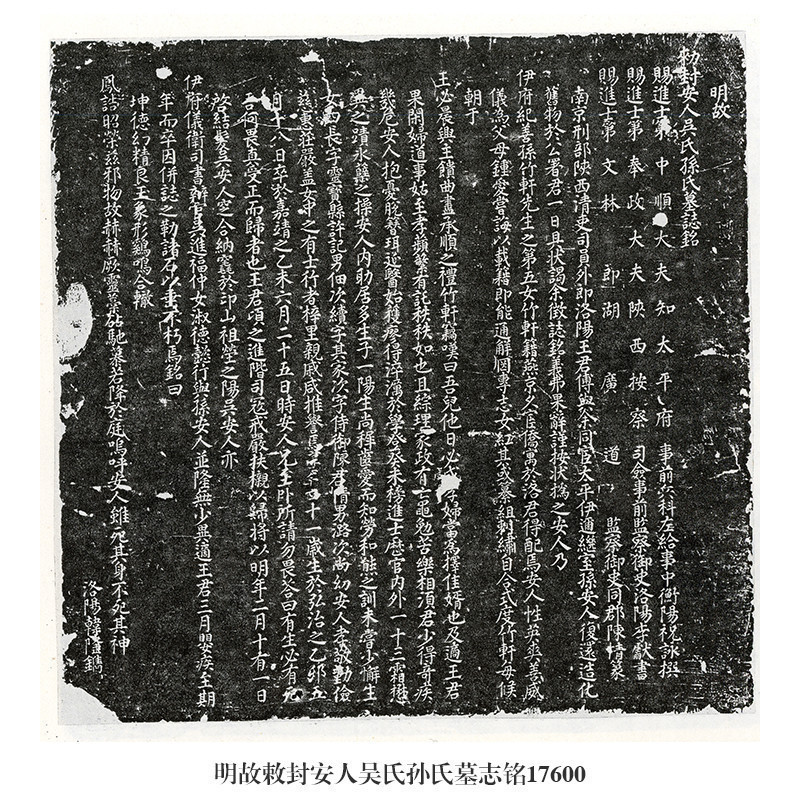 明故
勑封安人吳氏孫氏墓誌銘
賜進士第中順大夫知太平府事前兵科左給事中衡陽祝詠撰
賜進士第奉政大夫陝西按察司僉事前監察御史洛陽李獻書
賜進士第文林郎湖廣道監察御史同郡陳情篆
南京刑部陝西清吏司員外郎洛陽王君傅與余同官太平伊適繼室孫安人復還造化
舊物於公署君一日且狀謁余徵誌銘義弗果辭謹按狀撝之安人乃
伊府紀善孫竹軒先生之第五女竹軒籍燕京少官僑寓於洛君得配焉安人性英爽善威
儀為父母鍾愛嘗誨以載籍即能通解閫專志女紅其或纂組刺繡自合式度竹軒每候
朝于
王必晨與主饋曲盡承順之禮竹軒竊嘆曰吾兒他日必
婦當為擇佳婿也及適王君
果閑婦道事姑主孝蘋蘩有託秩秩如也且綜理家政有
黽勉苦樂相須君少得奇疾
幾危安人抱憂脫簪珥延醫始獲瘳得淬濿於學癸未榜進士歷官內外一十三霜懋
之蹟永蘗之操安人內助居多生子一陽生尚稺
愛而知勞和熊之訓未嘗少懈生
女四長字靈寶縣許記男佃次續字其家次字侍御陳君情男潞次尚幼安人孝敬勤儉
慈惠莊嚴蓋女中之有士行者梓里親戚咸推譽焉
四十一歲生於弘治之乙卯五
月十八日卒於嘉靖之乙未六月二十五日時安人兄主
所請勿畏答曰有生必有死
何畏直受正而歸者也王君頃之進階司寇戒嚴扶櫬以歸將以明年二月十有一日
啓結
吳安人空合納窀於邙山祖塋之陽吳安人亦
伊府儀衛司書辦官吳進福仲女淑德懿行與孫安人並隆無少異適王君三月
安疾至期
年而卒因併誌之勒諸石以垂不朽焉銘曰
坤德幻精良玉象形鷄鳴合轍
鳳誥昭榮茲邪物故赫赫厥靈
馳慕若降於庭嗚呼安人雖死其身不死其神
洛陽韓
鐫
明故敕封安人吴氏孙氏墓志铭17600